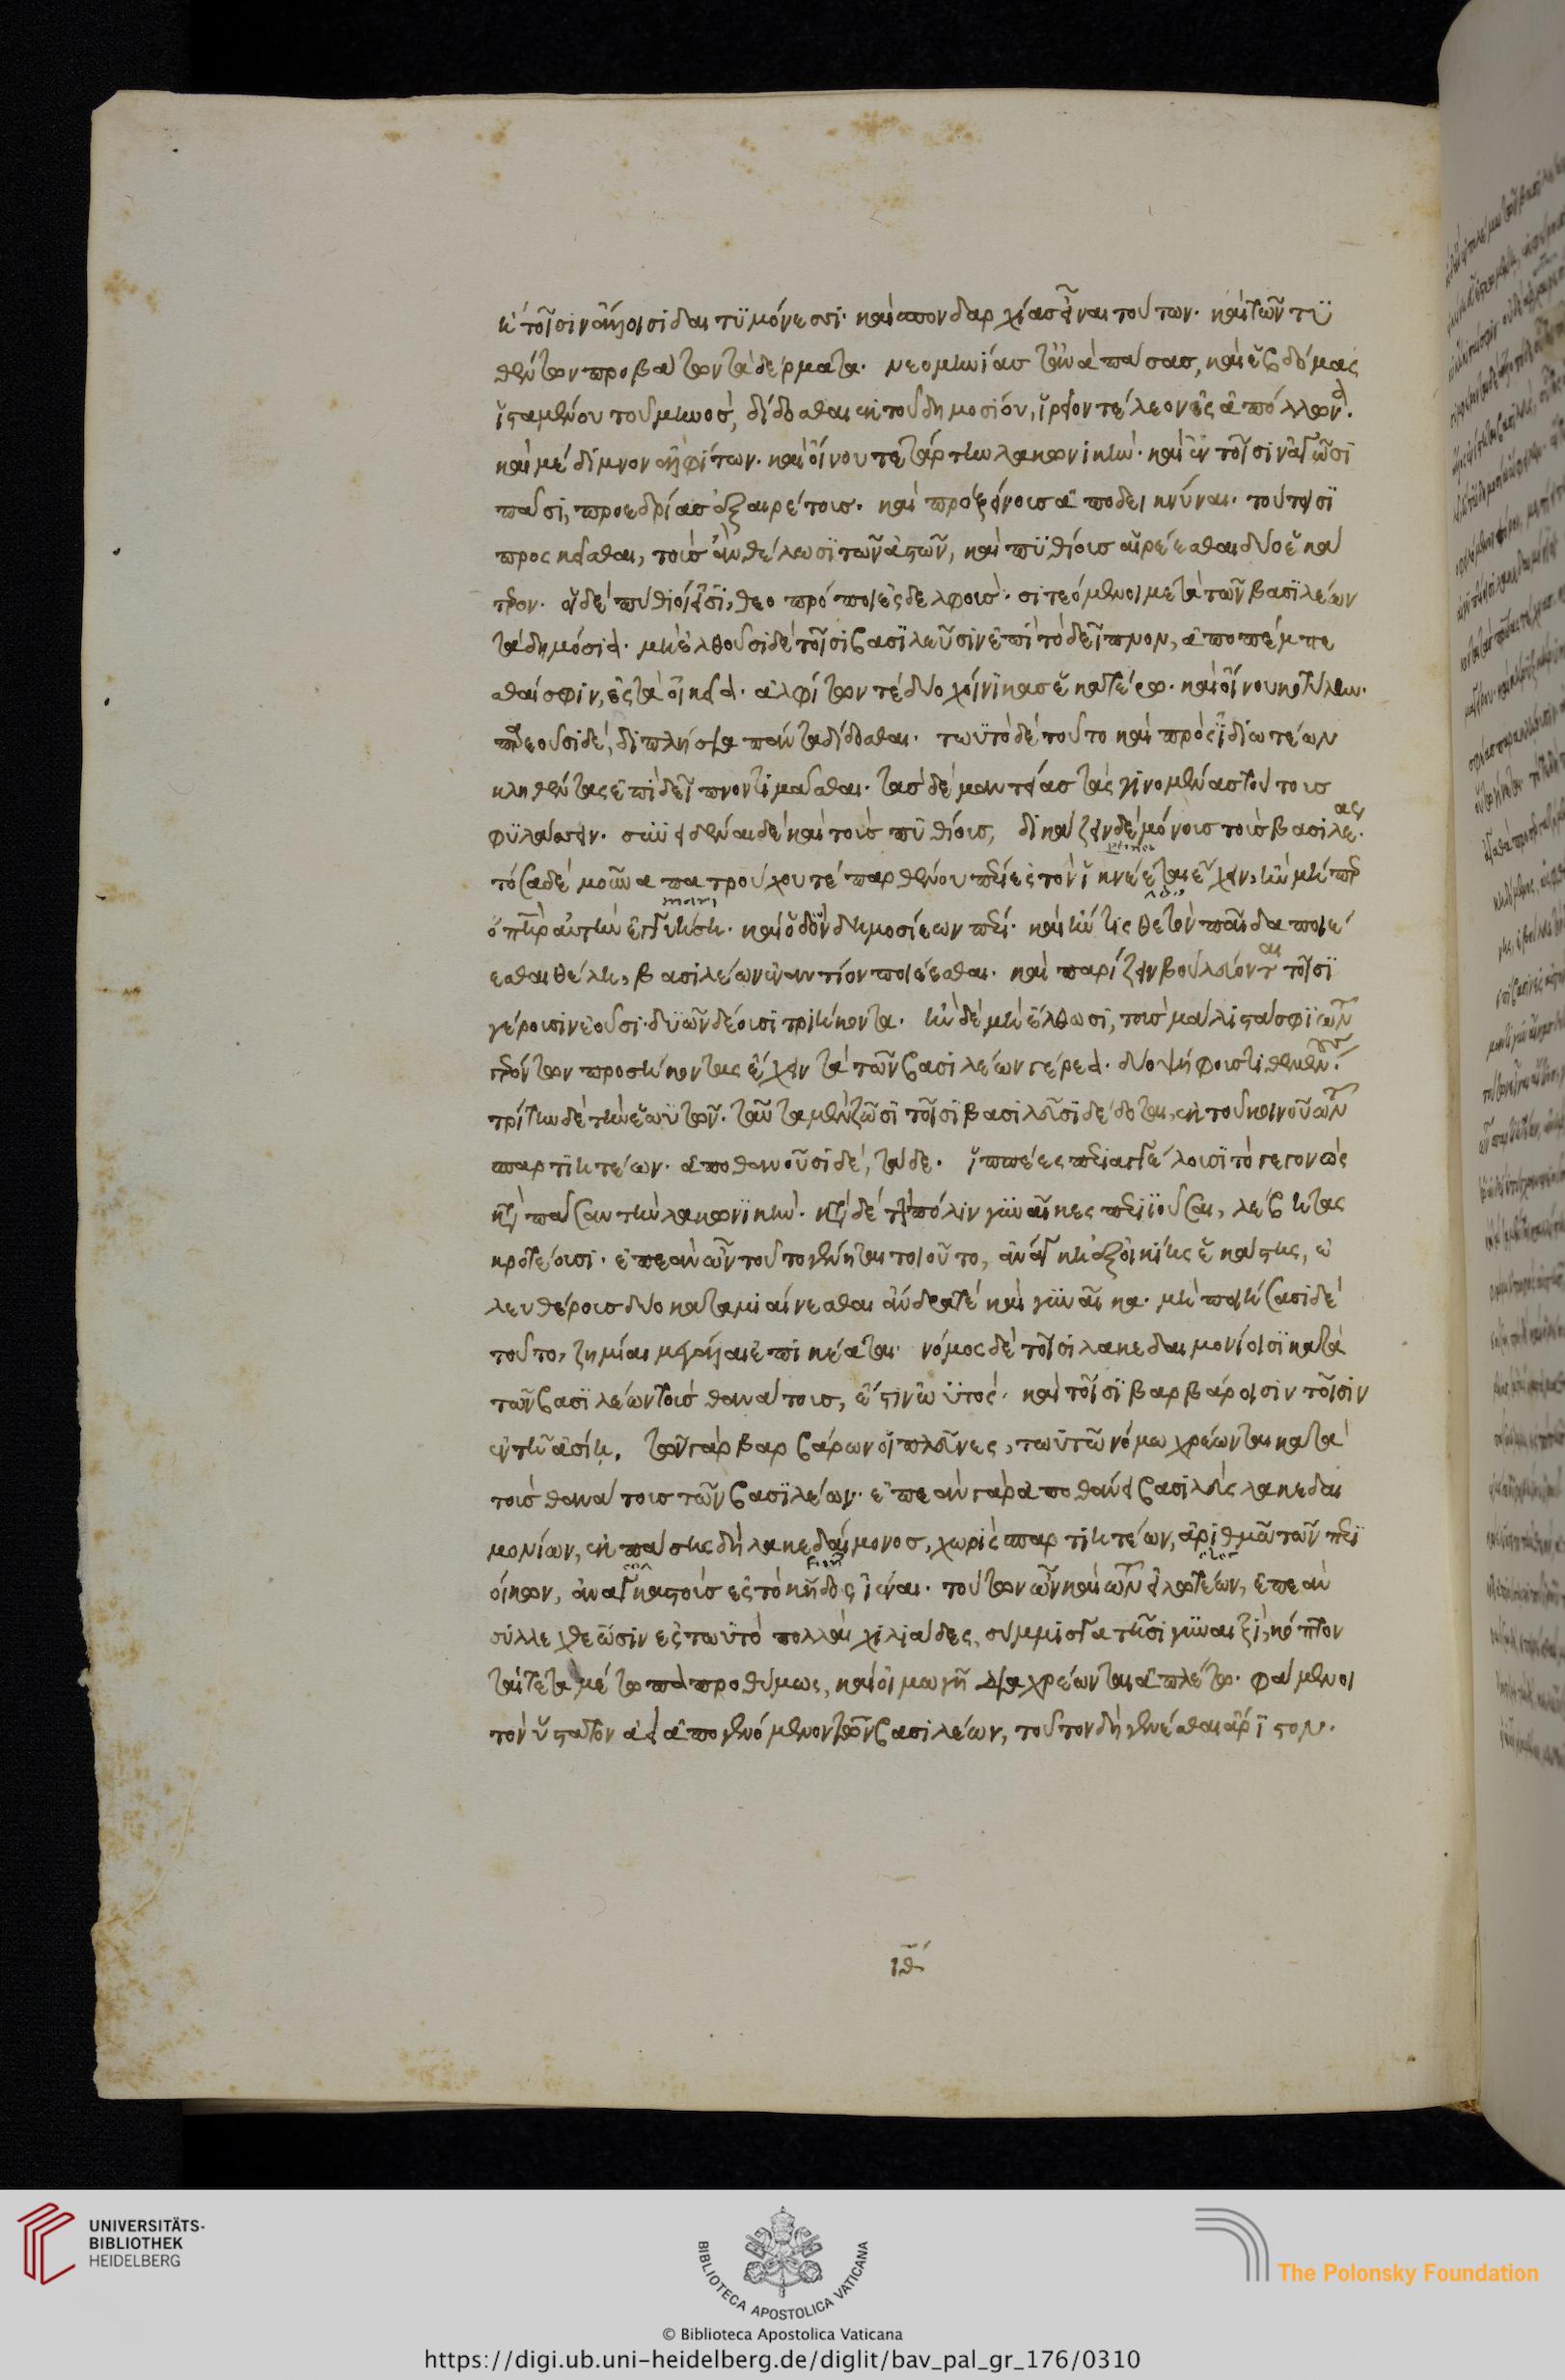 ἢ τοῖσιν ἄλλοισι δαιτϋμόνεσσι· καὶ σπονδαρχίας εἶναι τούτων· καὶ τῶν τϋ
θέντων προβάτων τὰ δέρματα· νεομηνίας δὲ ἀνὰ πάσας, καὶ ἑβδόμας
ἱσταμένου τοῦ μηνὸς, δίδοσθαι ἐκ τοῦ δημοσίου, ἱρεῖον τέλεον ἐς ἀπόλλωνα.
καὶ μέδιμνον ἀλφίτων· καὶ οἴνου τετάρτην λακωνικήν· καὶ ἐν τοῖσιν ἀγῶσι
πᾶσι, προεδρίας ἐξαιρέτους· καὶ προξείνους ἀποδεικνύναι· τούτοισϊ
προσκεῖσθαι, τοὺς ἂν θέλωσϊ τῶν ἀστῶν, καὶ πϋθίους αἱρέεσθαι δύο ἑκά
τερον· οἱ δὲ πύθιοί εἰσϊ, θεοπρόποι ἐς δελφούς· σιτεόμενοι μετὰ τῶν βασιλέων
τὰ δημόσια· μὴ ἐλθοῦσι δὲ τοῖσι βασϊλεῦσιν ἐπὶ τὸ δεῖπνον, ἀποπέμπε
σθαί σφιν, ἐς τὰ οἰκεῖα· ἀλφίτων τὲ δύο χοίνικας ἑκατέρω· καὶ οἴνου κοτύλην·
παρεοῦσι δὲ, διπλήσια πάντα δίδοσθαι· τωϋτὸ δὲ τοῦτο καὶ πρὸς ἰδιωτέων
κληθέντας ἐπὶ δεῖπνον τιμᾶσθαι· τὰς δὲ μαντείας τὰς γινομένας τούτους
φϋλάσσειν· συνειδέναι δὲ καὶ τοὺς πϋθίους, δικάζειν δὲ μόνους τοὺς βασιλέας·
τόσα δὲ μοῦνα πατρούχου τὲ παρθένου πέρι ἐς τὸν ἱκνέεται ἔχειν, ἢν μή περ
ὁ πατὴρ αὐτὴν ἐγγυήση· καὶ ὁδῶν δημοσιέων πέρι· καὶ ἤν τις θετὸν παῖδα ποιέ
εσθαι θέλη, βασιλέων ἐναντίον ποιέεσθαι· καὶ παρίζειν βουλεύονται τοῖσϊ
γέρουσιν ἐοῦσι· δϋῶν δέουσϊ τριήκοντα· ἢν δὲ μὴ ἔλθωσϊ, τοὺς μάλιστά σφϊ τῶν
γερόντων προσήκοντας ἔχειν τὰ τῶν βασιλέων γέρεα· δύο ψήφους τιθεμένους·
τρίτην δὲ τὴν ἑωϋτῶν· ταῦτα μὲν ζῶσϊ τοῖσϊ βασιλεῦσϊ δέδοται, ἐκ τοῦ κοινοῦ τῶν
σπαρτϊητέων· ἀποθανοῦσϊ δὲ, τάδε· ἱππέες περιαγγέλουσϊ τὸ γεγονὼς
κατὰ πᾶσαν τὴν λακωνϊκήν· κατὰ δὲ τὴν πόλιν γϋναῖκες περιϊοῦσαι, λέβητας
κροτέουσι· ἐπεὰν ὦν τοῦτο γένηται τοιοῦτο, ἀνάγκη ἐξ οἰκίης ἑκάστης, ἐ
λευθέρους δύο καταμιαίνεσθαι ἄνδρα τὲ καὶ γϋναῖκα· μὴ ποιήσασι δὲ
τοῦτο, ζημίαι μεγάλαι ἐπικέαται· νόμος δὲ τοῖσι λακεδαιμονίοισϊ κατὰ
τῶν βασϊλέων τοὺς θανάτους, ἐστὶν ὡϋτός· καὶ τοῖσϊ βαρβάροισιν τοῖσιν
ἐν τῆ ἀσίη. τῶν γὰρ βαρβάρων οἱ πλεῦνες, τωϋτῶ νόμω χρέωνται κατὰ
τοὺς θανάτους τῶν βασϊλέων· ἐπεὰν γὰρ ἀποθάνει βασιλεὺς λακεδαι
μονίων, ἐκ πάσης δὴ λακεδαίμονος, χωρὶς σπαρτϊητέων, ἀριθμῶ τῶν περϊ
οίκων, ἀναγκαστοὺς ἐς τὸ κῆδος ἰέναι· τούτων ὦν καὶ τῶν εἱλωτέων, ἐπεὰν
συλλεχθεῶσιν ἐς τωϋτὸ πολλαὶ χιλιάδες, σύμμιγα τῆσι γϋναιξὶ, κόπτον
ταί τε τὰ μέτωπα προθύμως, καὶ οἰμωγῆ διαχρέωνται ἀπλέτω· φάμενοι
τὸν ὕστατον ἀεὶ ἀπογενόμενον τῶν βασιλέων, τοῦτον δὴ γενέσθαι ἄριστον.
ιθ´
UNIVERSITÄTS-
BIBLIOTHEK
HEIDELBERG
BIBLIOTECA APOSTOLICA VATICANA
The Polonsky Foundation
© Biblioteca Apostolica Vaticana
https://digi.ub.uni-heidelberg.de/diglit/bav_pal_gr_176/0310